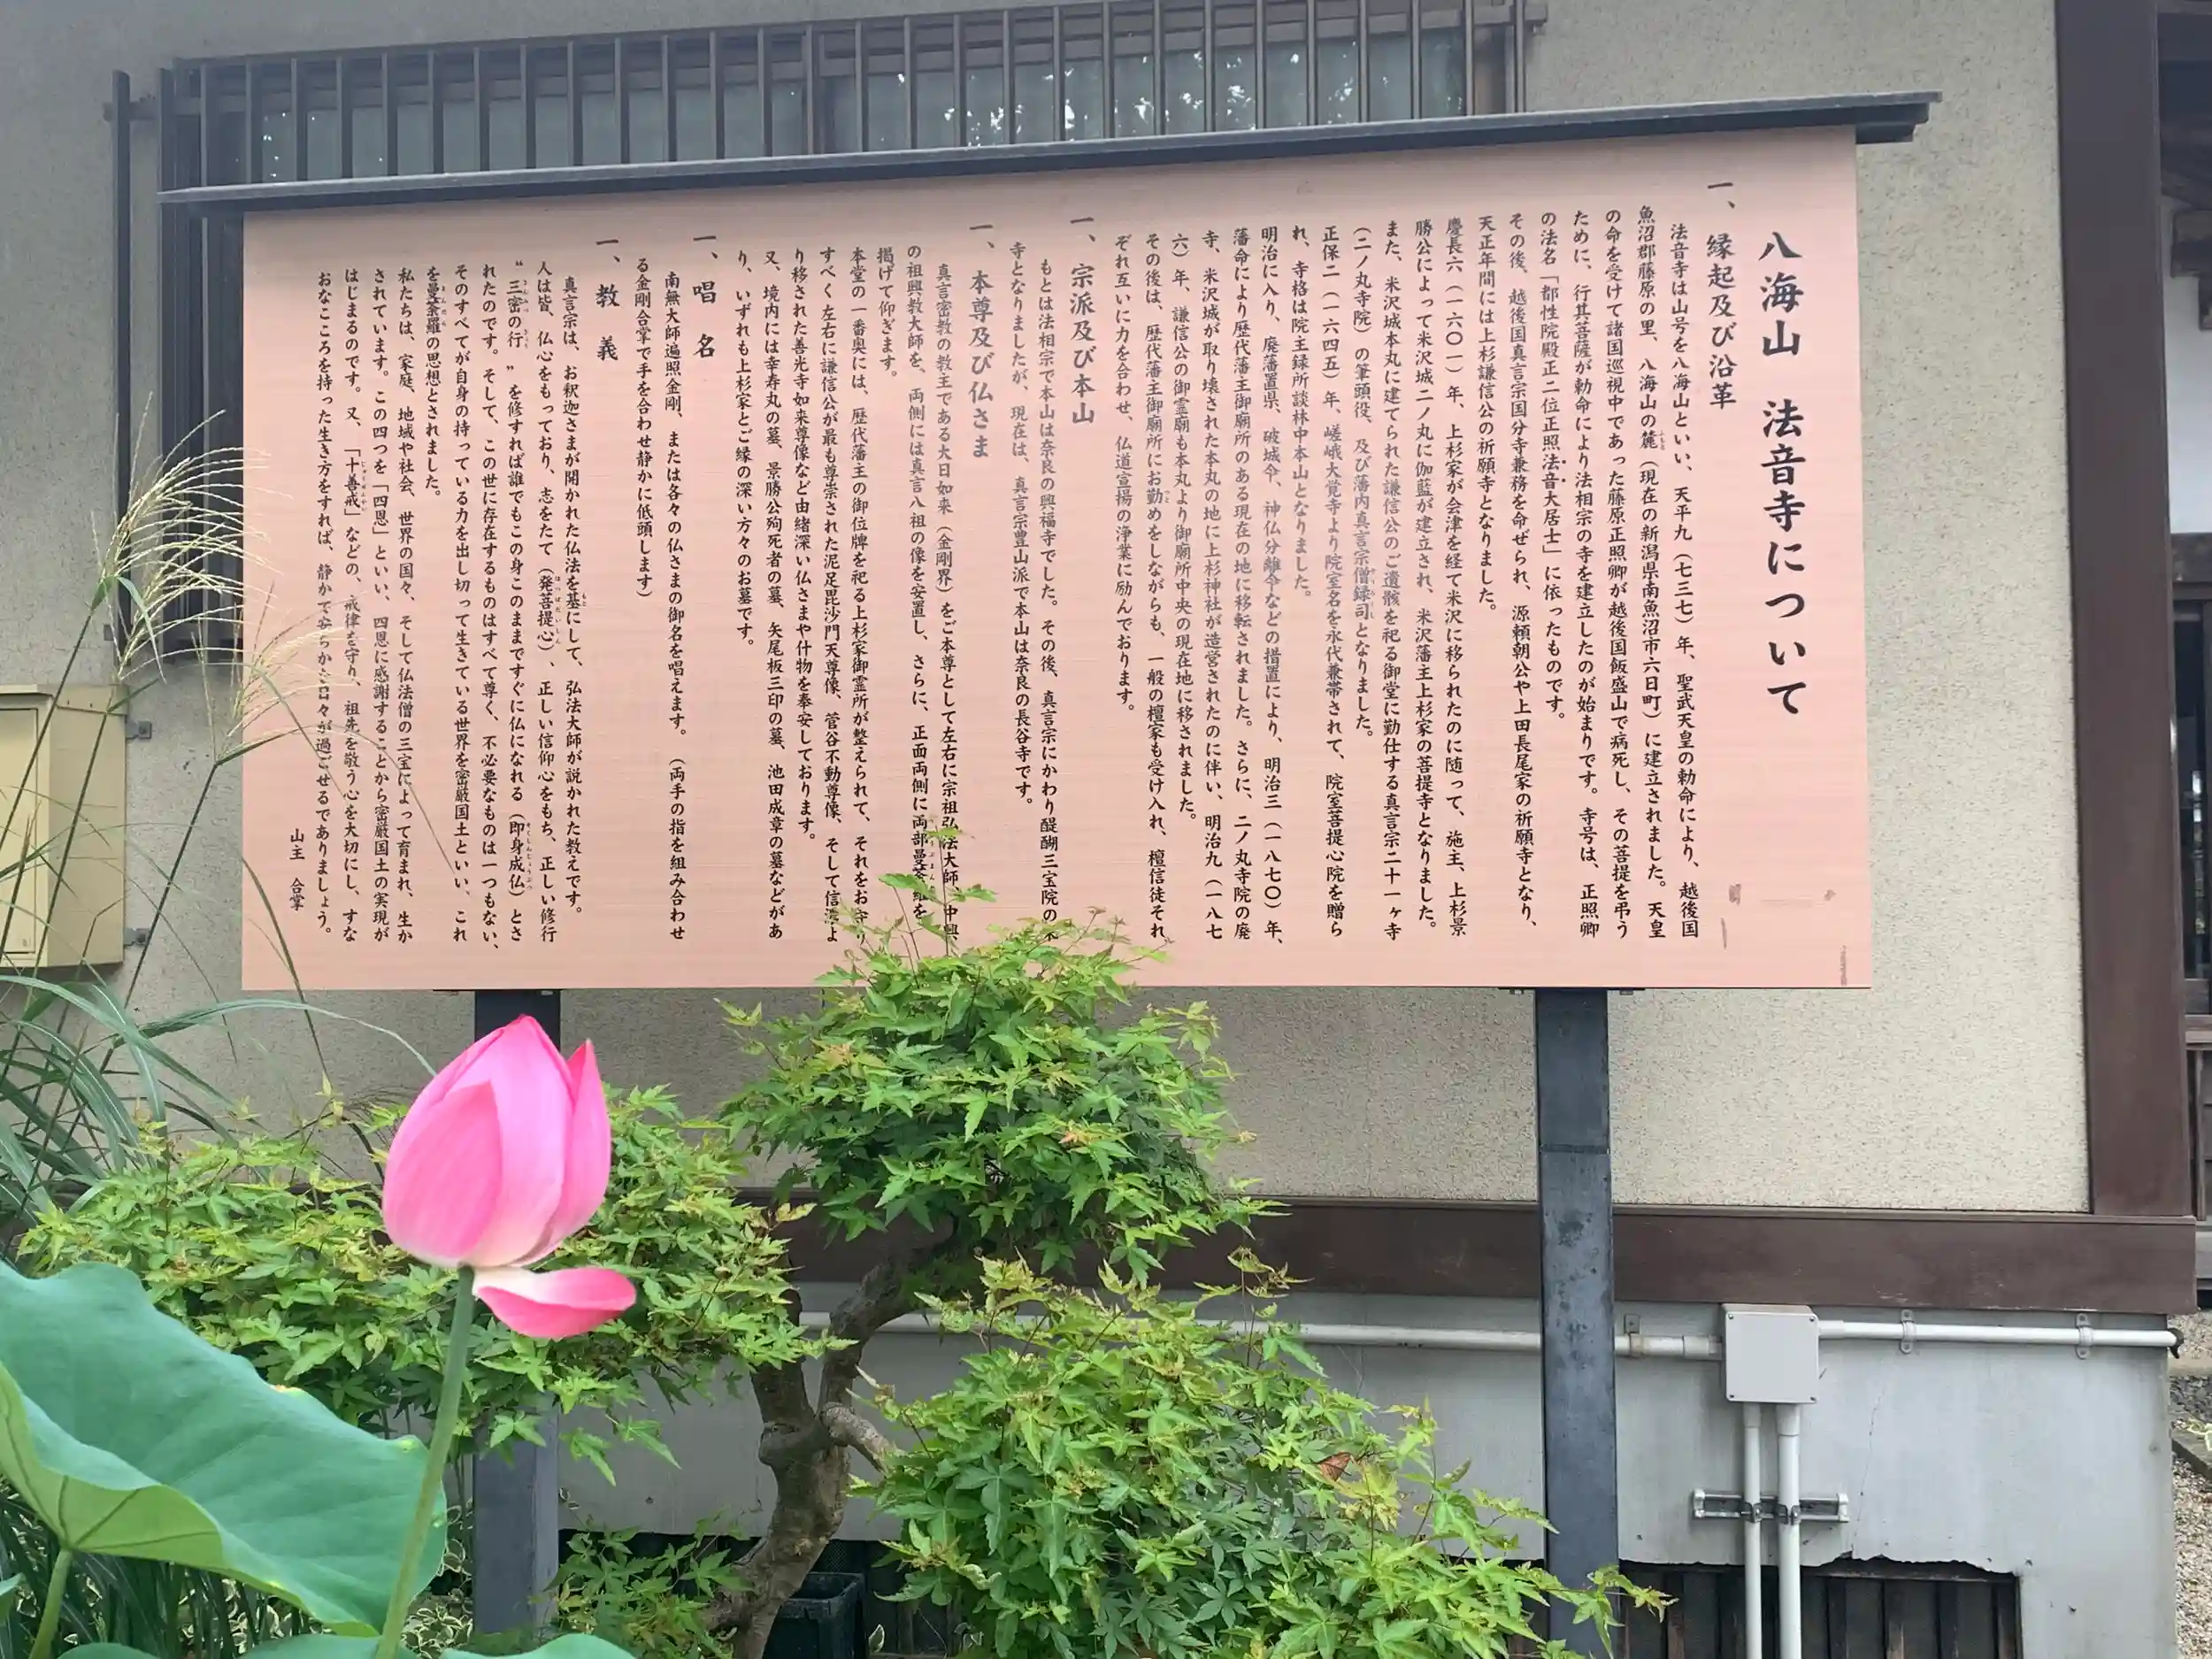 八海山 法音寺について
一、縁起及び沿革
法音寺は山号を八海山といい、天平九（七三七）年、聖武天皇の勅命により、越後国
魚沼郡藤原の里、八海山の麓（現在の新潟県南魚沼市六日町）に建立されました。天皇
の命を受けて諸国巡視中であった藤原正照卿が越後国飯盛山で病死し、その菩提を弔う
ために、行基菩薩が勅命により法相宗の寺を建立したのが始まりです。寺号は、正照卿
の法名「都性院殿正二位正照法音大居士」に依ったものです。
その後、越後国真言宗国分寺兼務を命ぜられ、源頼朝公や上田長尾家の祈願寺となり、
天正年間には上杉謙信公の祈願寺となりました。
慶長六（一六〇一）年、上杉家が会津を経て米沢に移られたのに随って、施主、上杉景
勝公によって米沢城二ノ丸に伽藍が建立され、米沢藩主上杉家の菩提寺となりました。
また、米沢城本丸に建てられた謙信公のご遺骸を祀る御堂に勤仕する真言宗二十一ヶ寺
（二ノ丸寺院）の筆頭役、及び藩内真言宗僧録司となりました。
正保二（一六四五）年、嵯峨大覚寺より院室名を永代兼帯されて、院室菩提心院を贈ら
れ、寺格は院主録所談林中本山となりました。
明治に入り、廃藩置県、破城令、神仏分離令などの措置により、明治三（一八七〇）年、
藩命により歴代藩主御廟所のある現在の地に移転されました。さらに、二ノ丸寺院の廃
寺、米沢城が取り壊された本丸の地に上杉神社が造営されたのに伴い、明治九（一八七
六）年、謙信公の御霊廟も本丸より御廟所中央の現在地に移されました。
その後は、歴代藩主御廟所にお勤めをしながらも、一般の檀家も受け入れ、檀信徒それ
ぞれ互いに力を合わせ、仏道宣揚の浄業に励んでおります。
一、宗派及び本山
もとは法相宗で本山は奈良の興福寺でした。その後、真言宗にかわり醍醐三宝院の末
寺となりましたが、現在は、真言宗豊山派で本山は奈良の長谷寺です。
一、本尊及び仏さま
真言密教の教主である大日如来（金剛界）をご本尊として左右に宗祖弘法大師、中興
の祖興教大師を、両側には真言八祖の像を安置し、さらに、正面両側に両部曼荼羅を
掲げて仰ぎます。
本堂の一番奥には、歴代藩主の御位牌を祀る上杉家御霊所が整えられて、それをお守り
すべく左右に謙信公が最も尊崇された泥足毘沙門天尊像、菅谷不動尊像、そして信濃よ
り移された善光寺如来尊像など由緒深い仏さまや什物を奉安しております。
又、境内には幸寿丸の墓、景勝公殉死者の墓、矢尾板三印の墓、池田成章の墓などがあ
り、いずれも上杉家とご縁の深い方々のお墓です。
一、唱 名
南無大師遍照金剛、または各々の仏さまの御名を唱えます。（両手の指を組み合わせ
る金剛合掌で手を合わせ静かに低頭します）
一、教 義
真言宗は、お釈迦さまが開かれた仏法を基にして、弘法大師が説かれた教えです。
人は皆、仏心をもっており、志をたて（発菩提心）、正しい信仰心をもち、正しい修行
“三密の行”を修すれば誰でもこの身このままですぐに仏になれる（即身成仏）とさ
れたのです。そして、この世に存在するものはすべて尊く、不必要なものは一つもない、
そのすべてが自身の持っている力を出し切って生きている世界を密厳国土といい、これ
を曼荼羅の思想とされました。
私たちは、家庭、地域や社会、世界の国々、そして仏法僧の三宝によって育まれ、生か
されています。この四つを「四恩」といい、四恩に感謝することから密厳国土の実現が
はじまるのです。又、「十善戒」などの、戒律を守り、祖先を敬う心を大切にし、すな
おなこころを持った生き方をすれば、静かで安らかな日々が過ごせるでありましょう。
山主 合掌